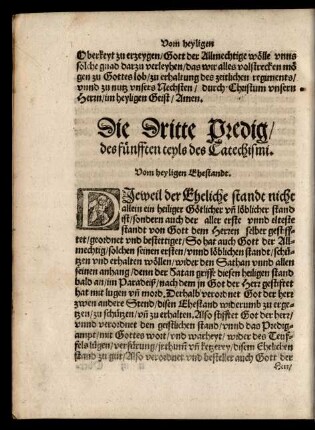 Vom heyligen
Oberkeyt zu erzeygen/ Gott der Allmechtige wölle vnns
solche gnad darzu verleyhen/ das wir alles volstrecken mö
gen zu Gottes lob/ zu erhaltung des zeitlichen regiments/
vnnd zu nutz vnsers Nechsten/ durch Christum vnsern
Herrn/ im heyligen Geist/ Amen.
Die Dritte Predig/
des fünfften teyls des Catechismi.
Vom heyligen Ehestandt.
DJeweil der Eheliche stande nicht
allein ein heiliger Götlicher vñ löblicher stand
ist/ sondern auch der aller erste vnnd elteste
standt von Gott dem Herren selber gestiff-
tet/ geordnet vnd bestettiget/ So hat auch Gott der All-
mechtig/ solchen seinen ersten/ vnnd löblichen stande/ schü-
tzen vnd erhalten wöllen/ wider den Sathan vnnd allen
seinen anhang/ denn der Satan griffe diesen heiligen stand
bald an/ im Paradeiß/ nach dem jn Got der Herr gestifftet
hat mit lugen vñ mord. Derhalb verordnet Got der herr
zwen andere Stend/ disen Ehestand widerumb zu ergen-
tzen/ zu schützen/ vñ zu erhalten. Also stifftet Got der herr/
vnnd verordnet den geistlichen stand/ vnnd das Predig-
ampt/ mit Gottes wort/ vnd warheyt/ wider des Teuf-
fels lügen/ verfürung/ jrrthumb vñ ketzerey/ disem Ehelichen
stand zu gut/ Also verordnet vnd bestellet auch Gott der
Herr/